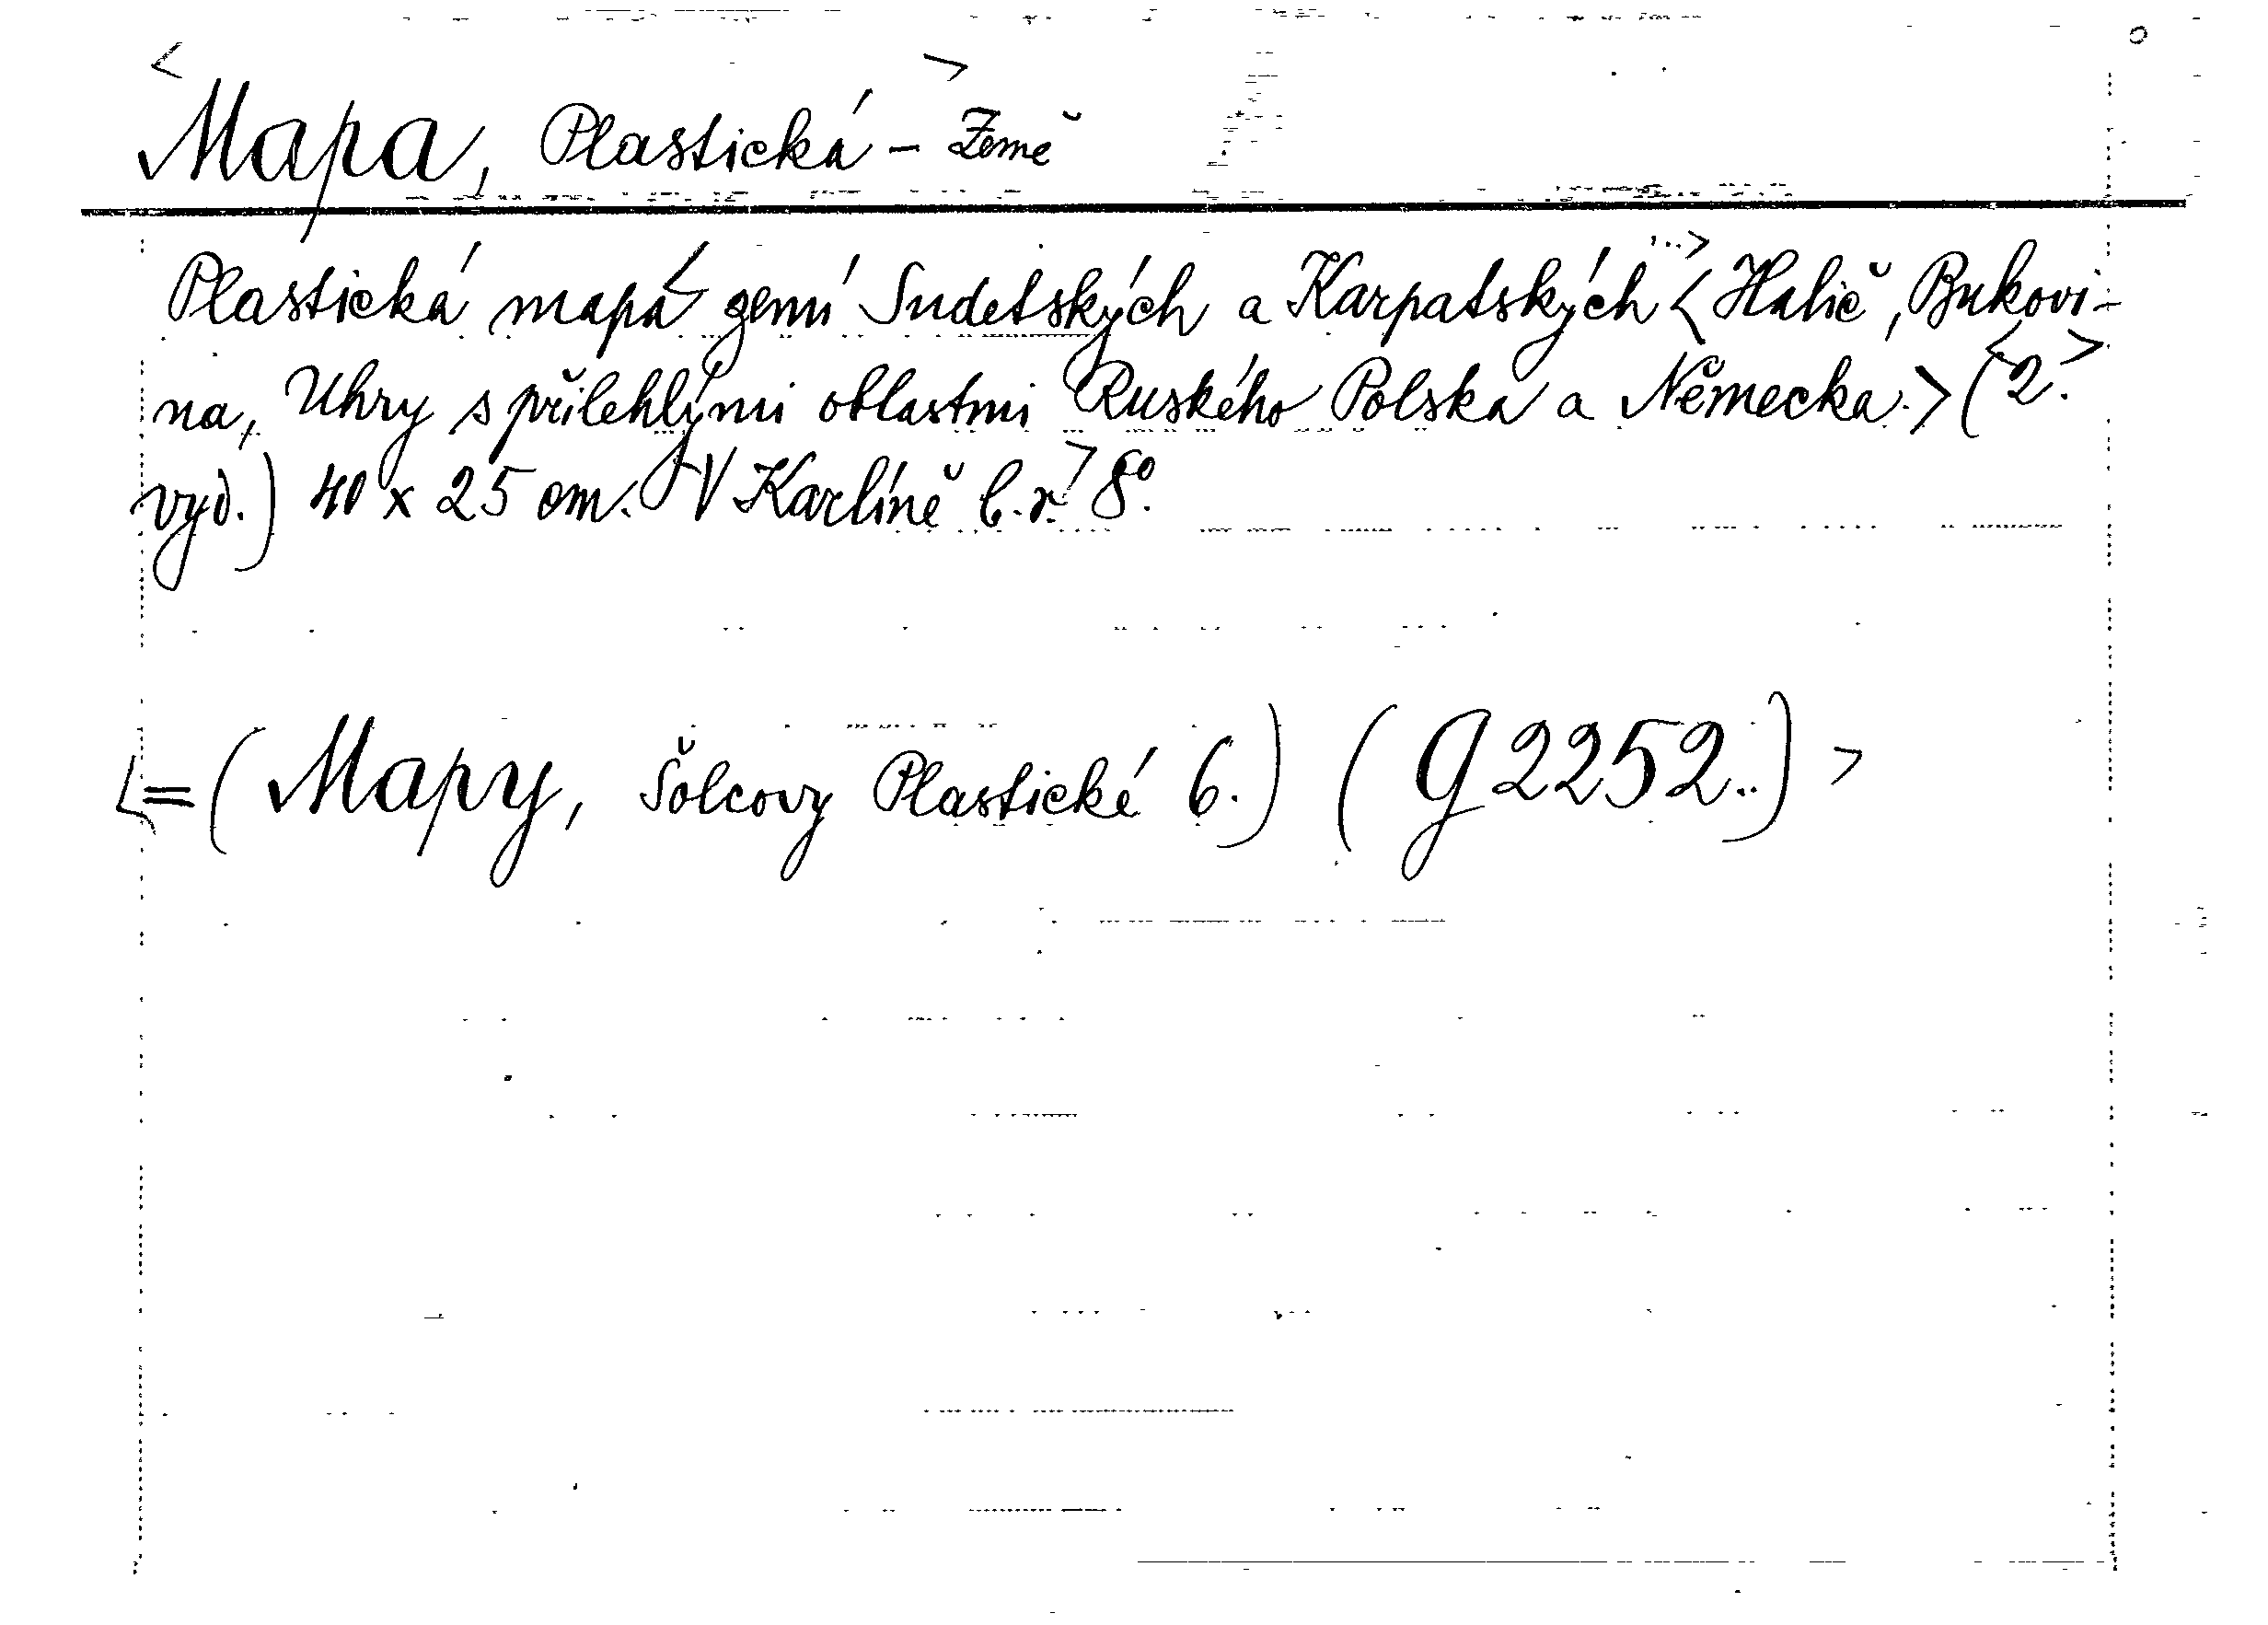 <Mapa, Plastická> - Země
Plastická mapa< zemí Sudetských a Karpatských ...> <Halič, Bukovi-
na, Uhry s přilehlými oblastmi Ruského Polska a Německa.> (<2.>
vyd.) 40 x 25 cm. <V Karlíně b. r.> 8°.
<= (Mapy, Šolcovy Plastické 6.) (G 2252..) >